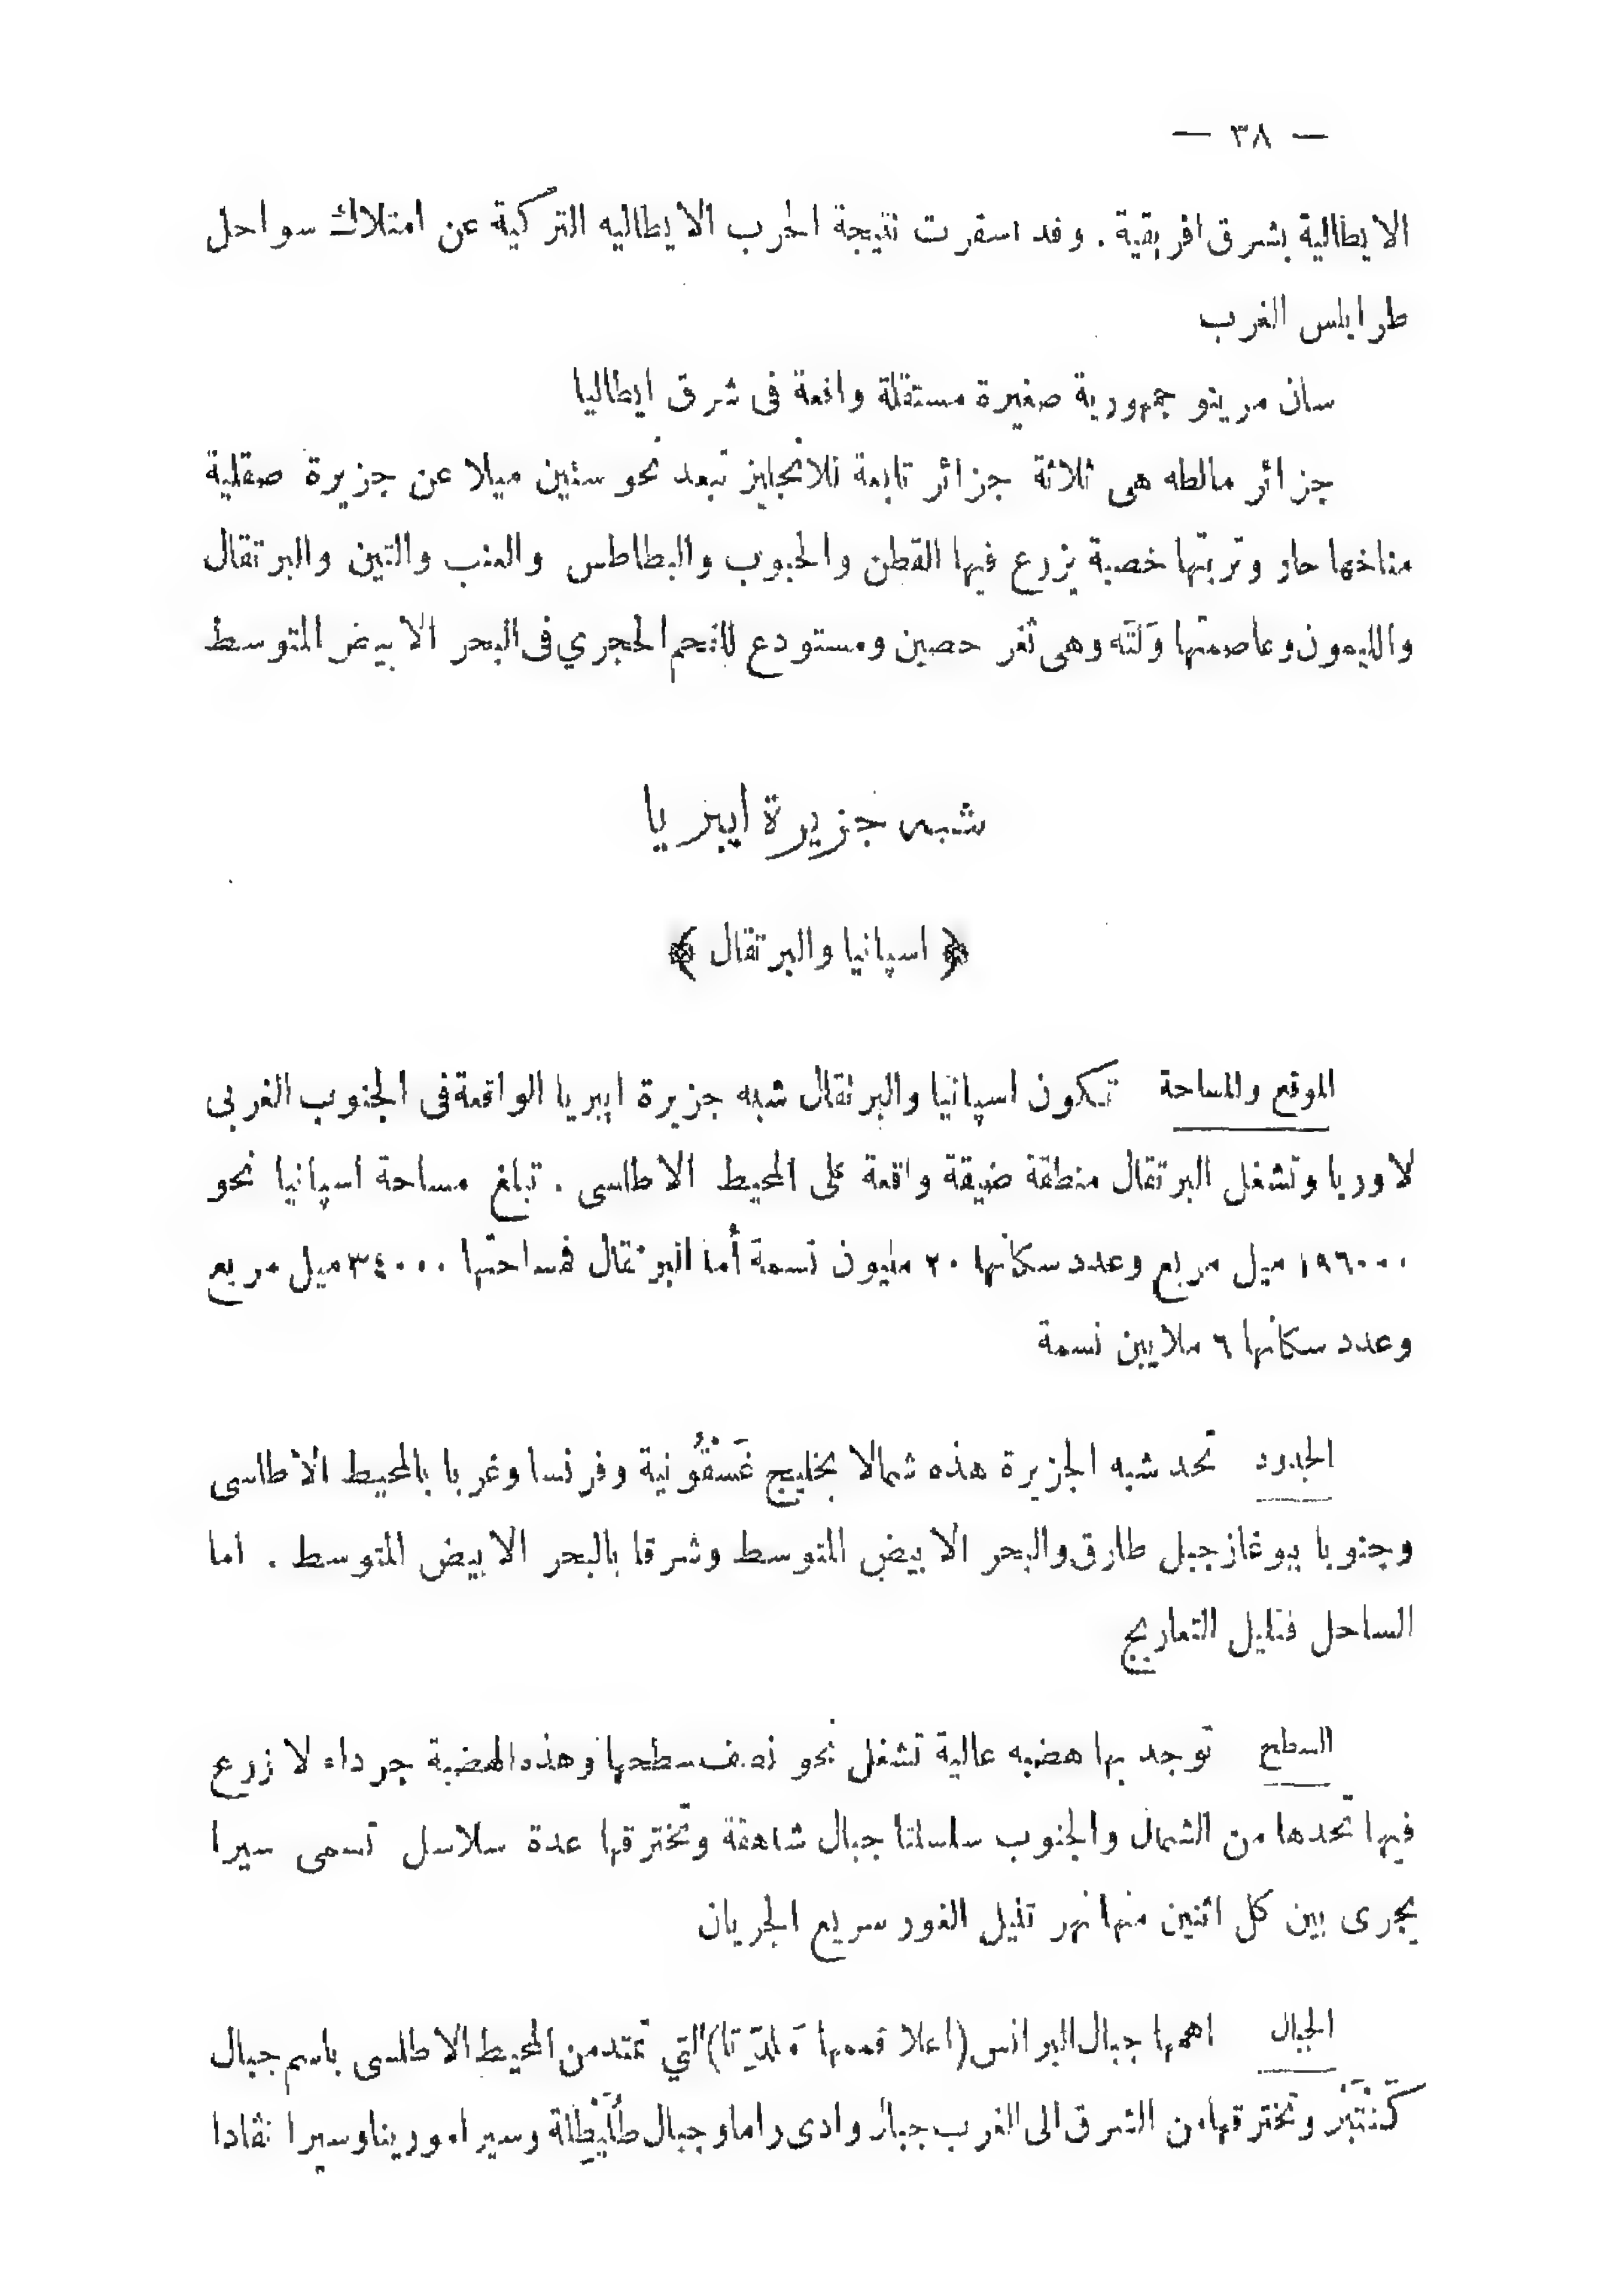 — ٣٨ —
الايطالية بشرق افريقية . وقد اسفرت نتيجة الحرب الايطاليه التركية عن امتلاك سواحل
طرابلس الغرب
سان مرينو جمهورية صغيرة مستقلة واقعة فى شرق ايطاليا
جزائر مالطه هى ثلاثة جزائر تابعة للانجليز تبعد نحو ستين ميلا عن جزيرة صقلية
مناخها حار وتربتها خصبة يزرع فيها القطن والحبوب والبطاطس والعنب والتين والبرتقال
والليمون وعاصمتها وَلَتَه وهى ثغر حصين ومستودع للفحم الحجري فى البحر الابيض المتوسط
شبه جزيرة ايبريا
﴿ اسپانيا والبرتقال ﴾
الموقع والمساحة تكون اسپانيا والبرتقال شبه جزيرة ايبريا الواقعة فى الجنوب الغربى
لاوربا وتشغل البرتقال منطقة ضيقة واقعة على المحيط الاطلسى . تبلغ مساحة اسپانيا نحو
١٩٦٠٠٠ ميل مربع وعدد سكانها ٢٠ مليون نسمة أما البرتقال فمساحتها ٣٤٠٠٠ ميل مربع
وعدد سكانها ٦ ملايين نسمة
الحدود تحد شبه الجزيرة هذه شمالا بخليج غَسْقُونية وفرنسا وغربا بالمحيط الاطلسى
وجنوبا ببوغاز جبل طارق والبحر الابيض المتوسط وشرقا بالبحر الابيض المتوسط . اما
الساحل فقليل التعاريج
السطح توجد بها هضبه عالية تشغل نحو نصف سطحها وهذه الهضبة جرداء لا زرع
فيها تحدها من الشمال والجنوب سلسلتا جبال شاهقة وتخترقها عدة سلاسل تسمى سيرا
يجرى بين كل اثنين منها نهر قليل الغور سريع الجريان
الجبال اهمها جبال البرانس (اعلا قممها ) التي تمتد من المحيط الاطلسى باسم جبال
كَنْتَبْر وتخترقها من الشرق الى الغرب جبال وادى راما وجبال طُلَيْطِلة وسيرا مورينا وسيرا نڤادا